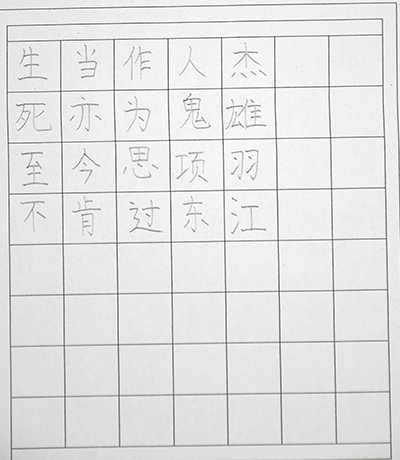 生当作人杰
死亦为鬼雄
至今思项羽
不肯过东江